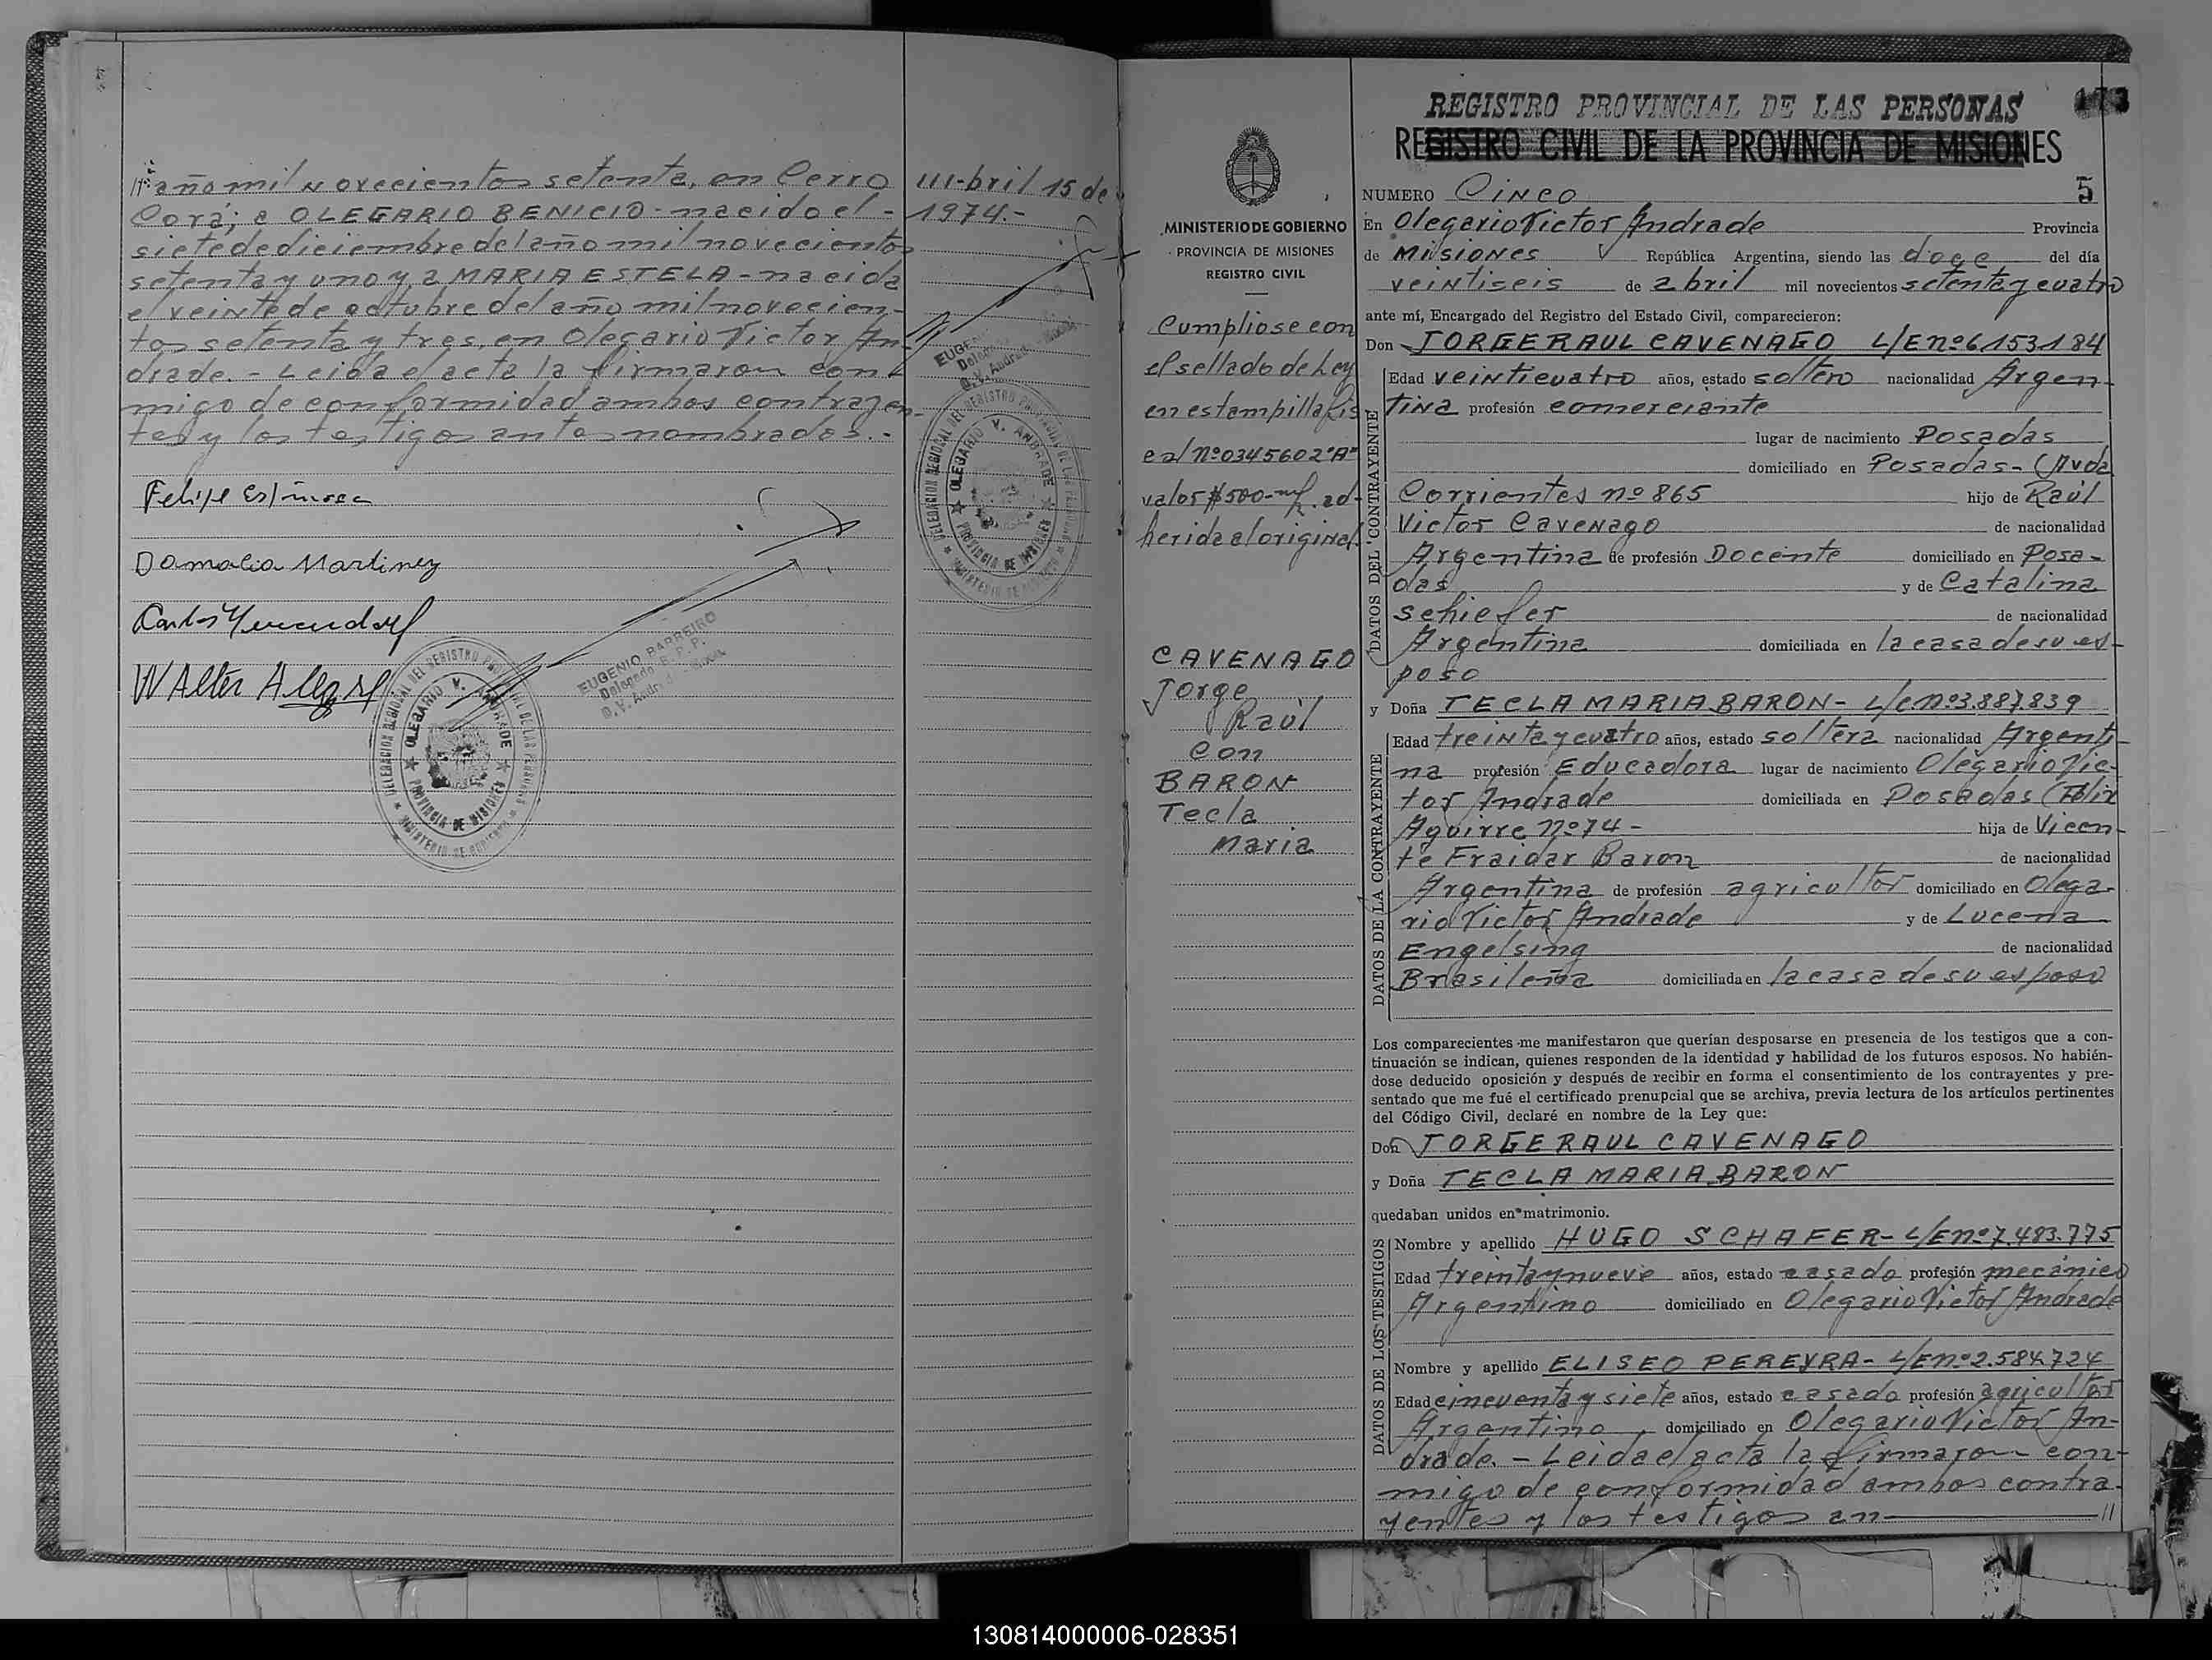 año mil novecientos setenta, en Cerro
Corá; a OLEGARIO BENICIO - nacido el -
siete de diciembre del año mil novecientos
setenta y uno y a MARIA ESTELA - nacida
el veinte de octubre del año mil novecien-
tos setenta y tres, en Olegario Victor An-
drade. - Leida el acta la firmaron con-
migo de conformidad ambos contrayen-
tes y los testigos antes nombrados. -
bril 15 de
1974.-
Felipe Espinosa
Damacia Martinez
Walter Alegre
EUGENIO BARREIRO
Delegado R. P. P.
O. V. Andrade - Mnes.
DELEGACION REGIONAL DEL REGISTRO PROVINCIAL DE LAS PERSONAS
OLEGARIO V. ANDRADE
PROVINCIA DE MISIONES
MINISTERIO DE GOBIERNO
DELEGACION REGIONAL DEL REGISTRO PROVINCIAL DE LAS PERSONAS
OLEGARIO V. ANDRADE
PROVINCIA DE MISIONES
MINISTERIO DE GOBIERNO
173
REGISTRO PROVINCIAL DE LAS PERSONAS
REGISTRO CIVIL DE LA PROVINCIA DE MISIONES
MINISTERIO DE GOBIERNO
PROVINCIA DE MISIONES
REGISTRO CIVIL
Cumpliose con
el sellado de Ley
en estampilla fis
cal Nº 0345602 "A"
valor $ 500-m/n. ad-
herida al original.
CAVENAGO
Jorge
Raúl
con
BARON
Tecla
Maria
NUMERO Cinco 5
En Olegario Victor Andrade Provincia
de Misiones República Argentina, siendo las doce del día
veintiseis de abril mil novecientos setenta y cuatro
ante mí, Encargado del Registro del Estado Civil, comparecieron:
Don JORGE RAUL CAVENAGO L/E nº 6153184
DATOS DEL CONTRAYENTE
Edad veinticuatro años, estado soltero nacionalidad Argen-
tina profesión comerciante
lugar de nacimiento Posadas
domiciliado en Posadas - (Avda
Corrientes nº 865 hijo de Raúl
Victor Cavenago de nacionalidad
Argentina de profesión Docente domiciliado en Posa-
das y de Catalina
Schiefer de nacionalidad
Argentina domiciliada en la casa de su es-
poso
y Doña TECLA MARIA BARON - L/C nº 3.887.839
DATOS DE LA CONTRAYENTE
Edad treinta y cuatro años, estado soltera nacionalidad Argenti-
na profesión Educadora lugar de nacimiento Olegario Vic-
tor Andrade domiciliada en Posadas (Félix
Aguirre nº 74 - hija de Vicen-
te Fraidar Baron de nacionalidad
Argentina de profesión agricultor domiciliado en Olega-
rio Victor Andrade y de Lucena
Engelsing de nacionalidad
Brasileña domiciliada en la casa de su esposo
Los comparecientes me manifestaron que querían desposarse en presencia de los testigos que a con-
tinuación se indican, quienes responden de la identidad y habilidad de los futuros esposos. No habién-
dose deducido oposición y después de recibir en forma el consentimiento de los contrayentes y pre-
sentado que me fué el certificado prenupcial que se archiva, previa lectura de los artículos pertinentes
del Código Civil, declaré en nombre de la Ley que:
Don JORGE RAUL CAVENAGO
y Doña TECLA MARIA BARON
quedaban unidos en matrimonio.
DATOS DE LOS TESTIGOS
Nombre y apellido HUGO SCHAFER - L/E nº 7.483.775
Edad treinta y nueve años, estado casado profesión mecánico
Argentino domiciliado en Olegario Victor Andrade
DATOS DE LOS TESTIGOS
Nombre y apellido ELISEO PEREYRA - L/E nº 2.584.724
Edad cincuenta y siete años, estado casado profesión agricultor
Argentino domiciliado en Olegario Victor An-
drade. - Leida el acta la firmaron con-
migo de conformidad ambos contra-
yentes y los testigos an- //
130814000006-028351